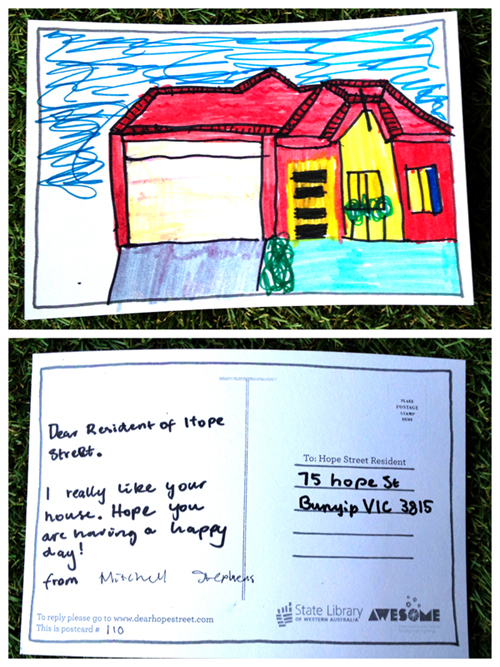 Dear Resident of Hope
Street.
I really like your
house. Hope you
are having a happy
day!
from Mitchell Stephens
To reply please go to www.dearhopestreet.com
This is postcard # 110
PLACE
POSTAGE
STAMP
HERE
To: Hope Street Resident
75 hope St
Bunyip VIC 3815
State Library
OF WESTERN AUSTRALIA
AWESOME